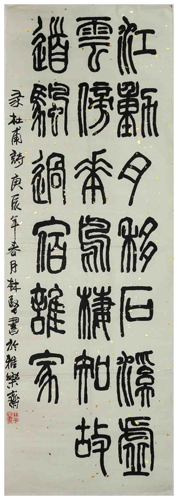 江動月移石溪虛
雲傍華鳥棲知故
道颿過宿誰家
录杜甫詩庚辰年春月林書於雅樂齋